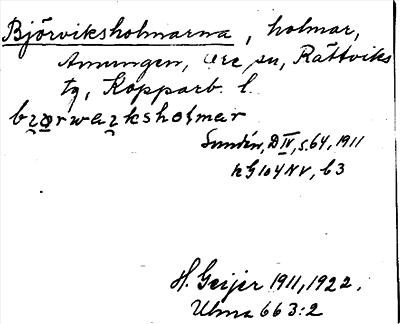 Björviksholmarna, holmar,
Amungen, Ore sn, Rättviks
tg, Kopparb. l.
Sundén, D IV, s. 64, 1911
kG 104 NV, b3
H. Geijer 1911, 1922.
Ulma 663:2